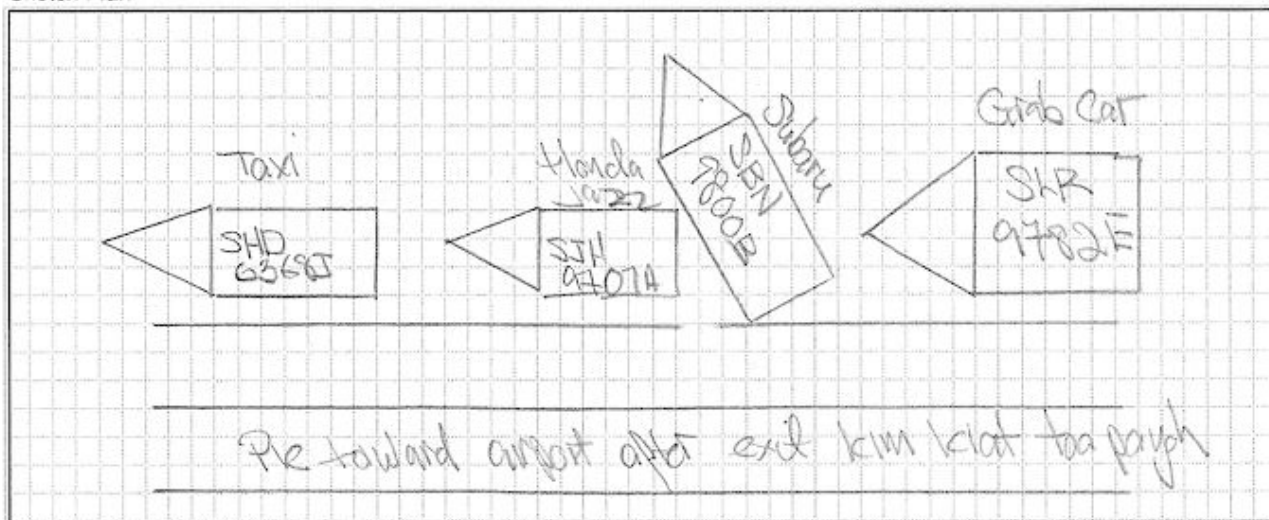 Taxi
SHD
6368J
Honda
Jazz
SJH
9707A
Subaru
SBN
7800B
Grab Car
SLR
9782E
Pie toward airport after exit kim kiat toa payoh